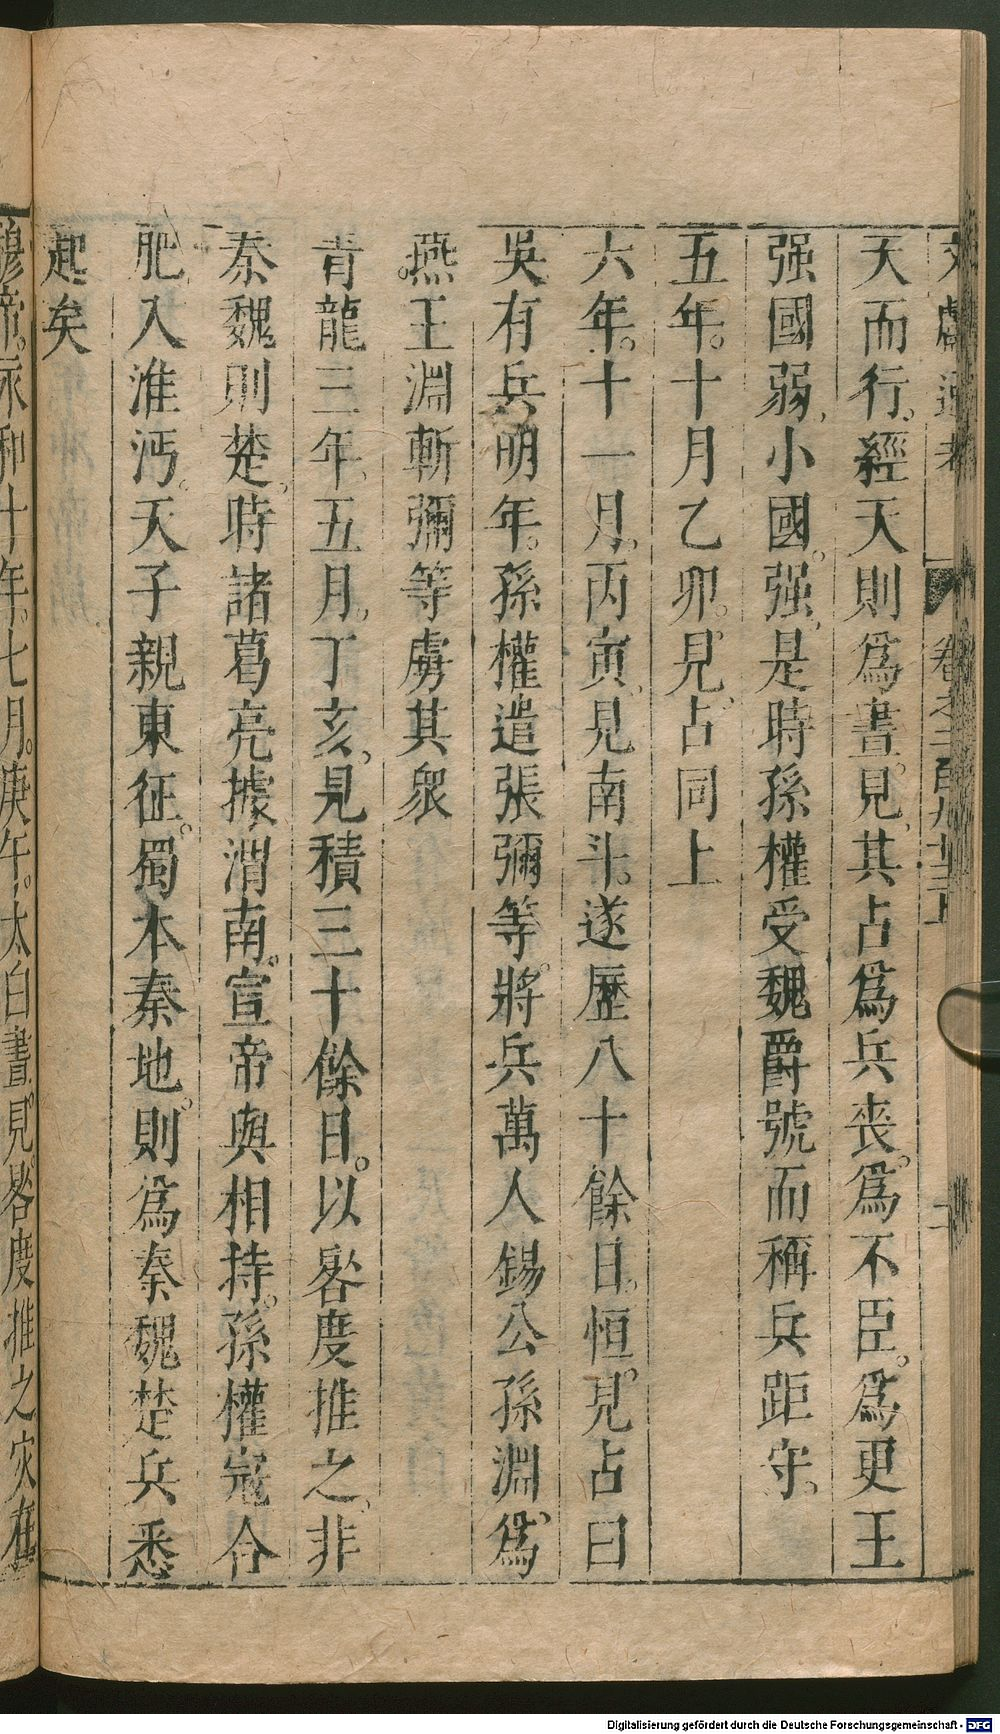 天而行。經天則爲晝見。其占爲兵喪。爲不臣。爲更王
强國弱。小國。强。是時孫權受魏爵號而稱兵距守。
五年。十月乙卯。見。占同上
六年。十一月。丙寅。見南斗。遂歷八十餘日。恒見。占曰
吳有兵明年。孫權遣張彌等。將兵萬人錫公孫淵。爲
燕王淵斬彌等虜其衆
青龍三年。五月。丁亥。見積三十餘日。以晷度推之。非
秦魏則楚。時諸葛亮據渭南。宣帝與相持。孫權宼合
肥入淮沔。天子親東征。蜀本秦地。則爲秦魏楚兵悉
起矣
穆帝。永和十年。七月。庚午。太白晝見。晷度推之灾在
Digitalisierung gefördert durch die Deutsche Forschungsgemeinschaft - DFG